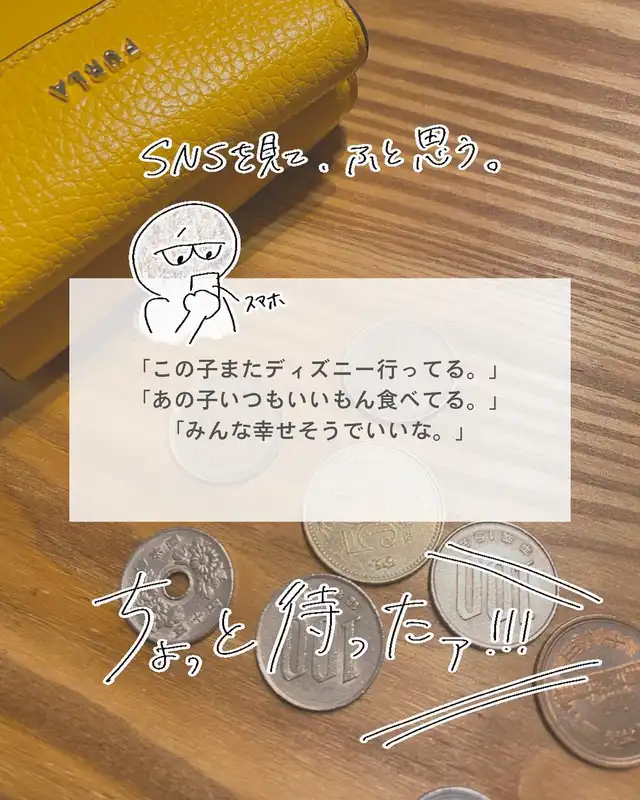 FURLA
SNSを見て、ふと思う。
スマホ
「この子またディズニー行ってる。」
「あの子いつもいいもん食べてる。」
「みんな幸せそうでいいな。」
ちょっと待ったァ!!!